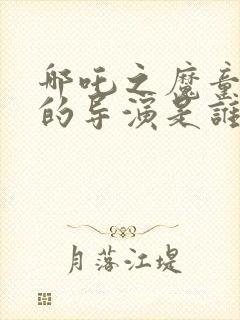 哪吒之魔童
的导演是誰
月落江堤